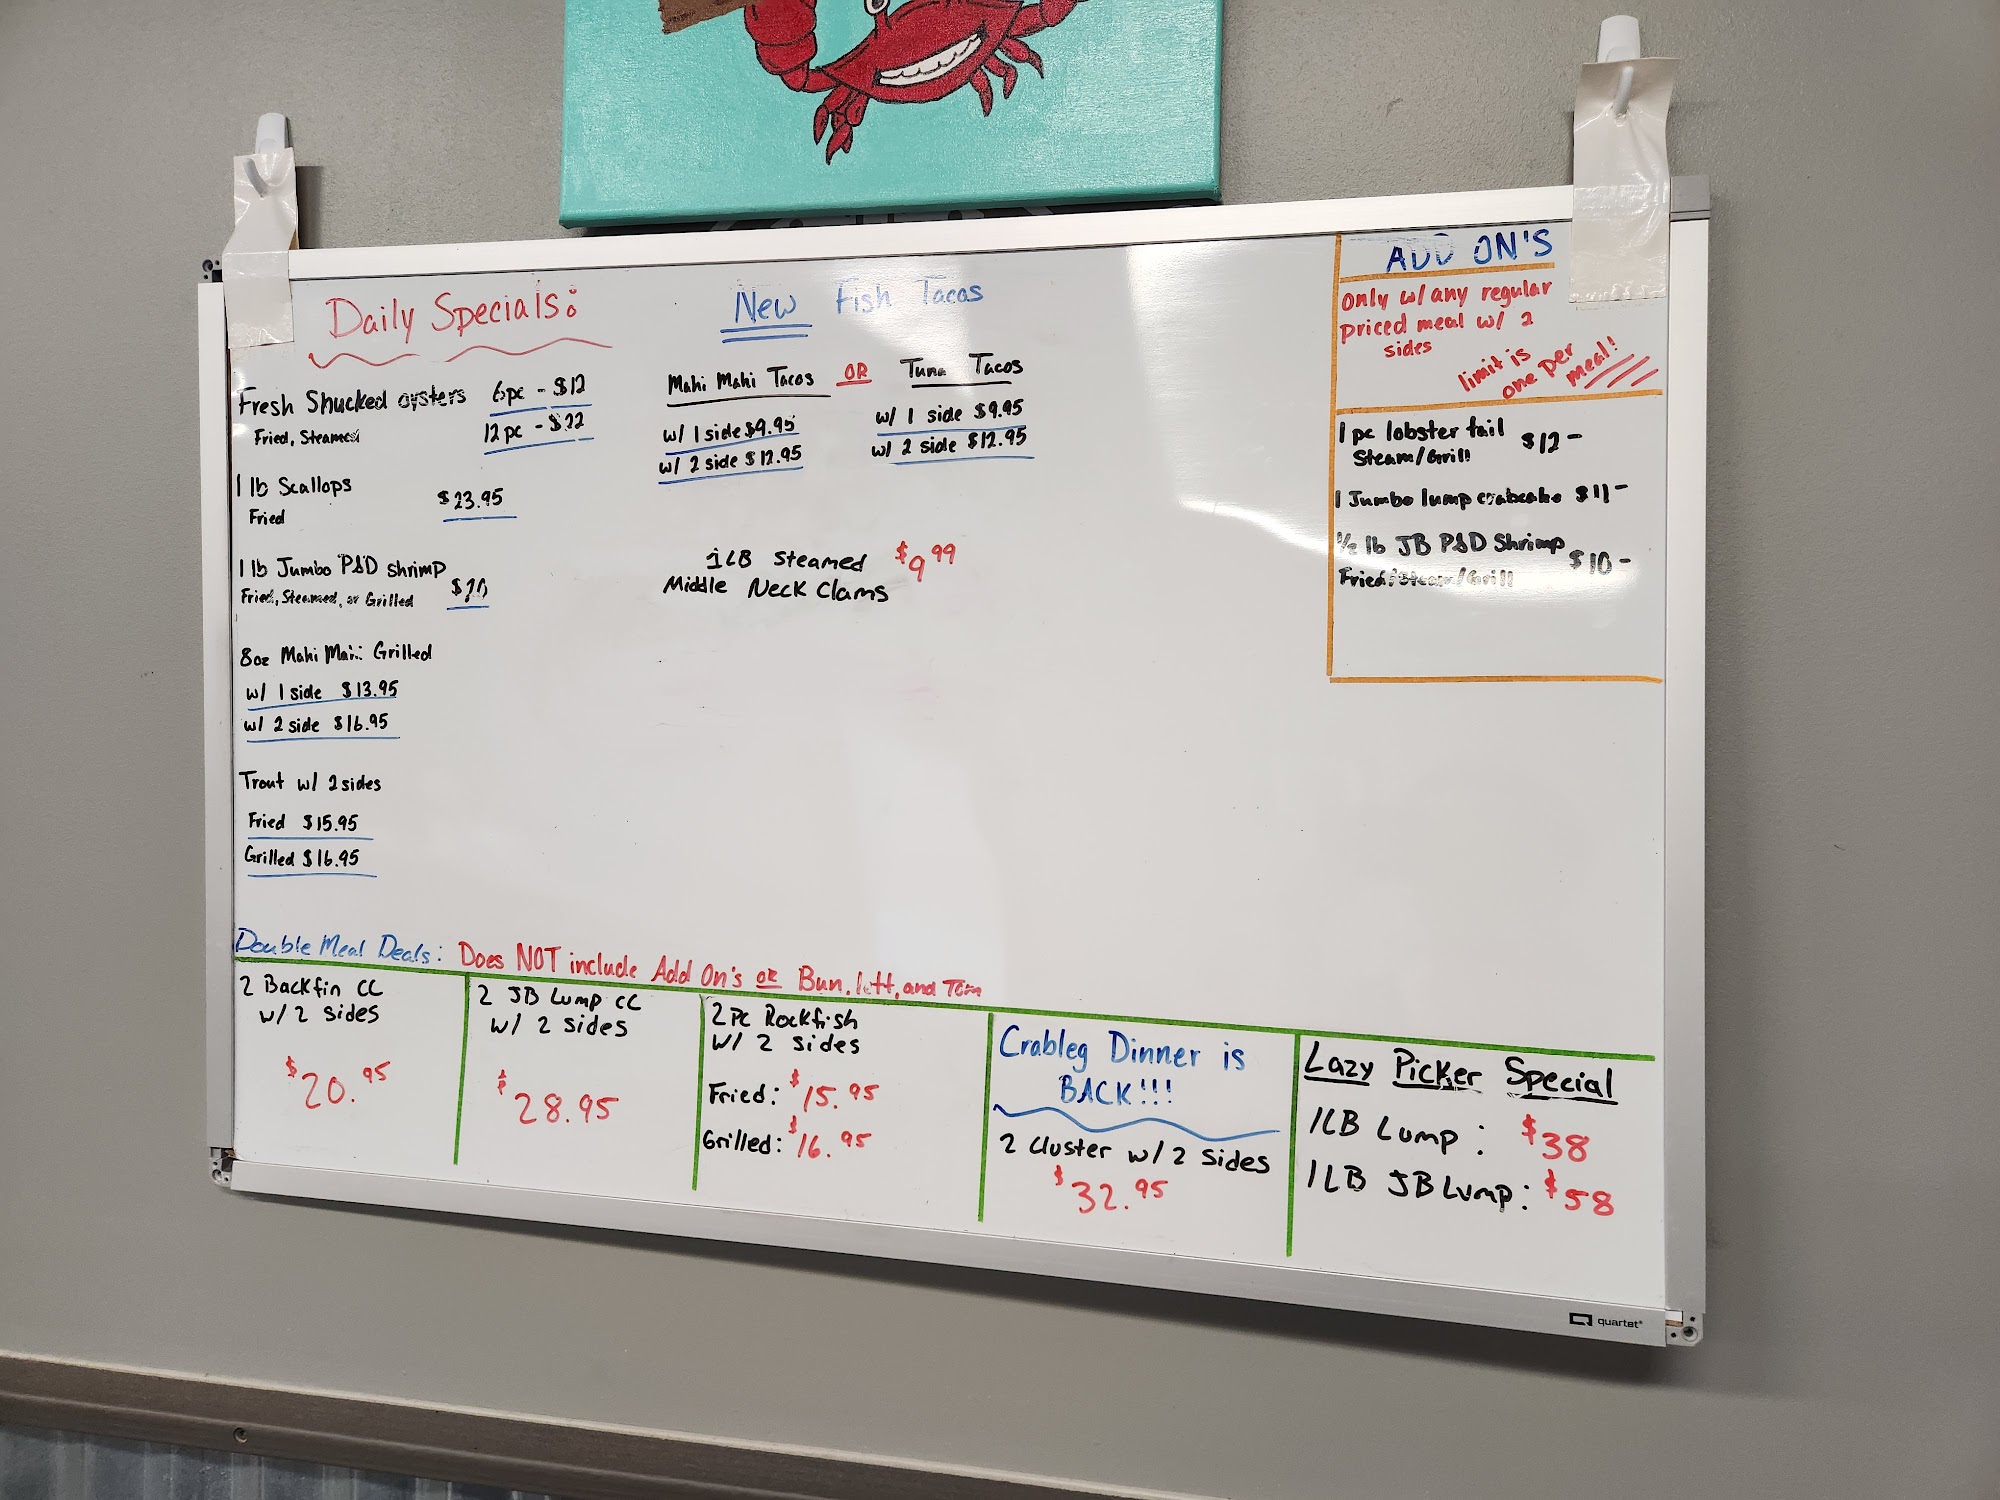 Daily Specials:
Fresh Shucked oysters 6pc - $12
Fried, Steamed 12 pc - $22
1 lb Scallops
Fried $23.95
1 lb Jumbo P&D shrimp
Fried, Steamed, or Grilled $20
8oz Mahi Mahi Grilled
w/ 1 side $13.95
w/ 2 side $16.95
Trout w/ 2 sides
Fried $15.95
Grilled $16.95
New Fish Tacos
Mahi Mahi Tacos OR Tuna Tacos
w/ 1 side $9.95
w/ 2 side $12.95
w/ 1 side $9.95
w/ 2 side $12.95
1 LB Steamed $9.99
Middle Neck Clams
ADD ON'S
only w/ any regular
priced meal w/ 2
sides
limit is
one per
meal!
1 pc lobster tail
Steam/Grill $12-
1 Jumbo lump crabcake $11-
1/2 lb JB P&D Shrimp
Fried/Steam/Grill $10-
Double Meal Deals: Does NOT include Add On's or Bun, lett, and Tom
2 Backfin CC
w/ 2 sides
$20.95
2 JB Lump CC
w/ 2 sides
$28.95
2Pc Rockfish
w/ 2 sides
Fried: $15.95
Grilled: $16.95
Crableg Dinner is
BACK!!!
2 Cluster w/ 2 Sides
$32.95
Lazy Picker Special
1LB Lump: $38
1LB JB Lump: $58
quartet